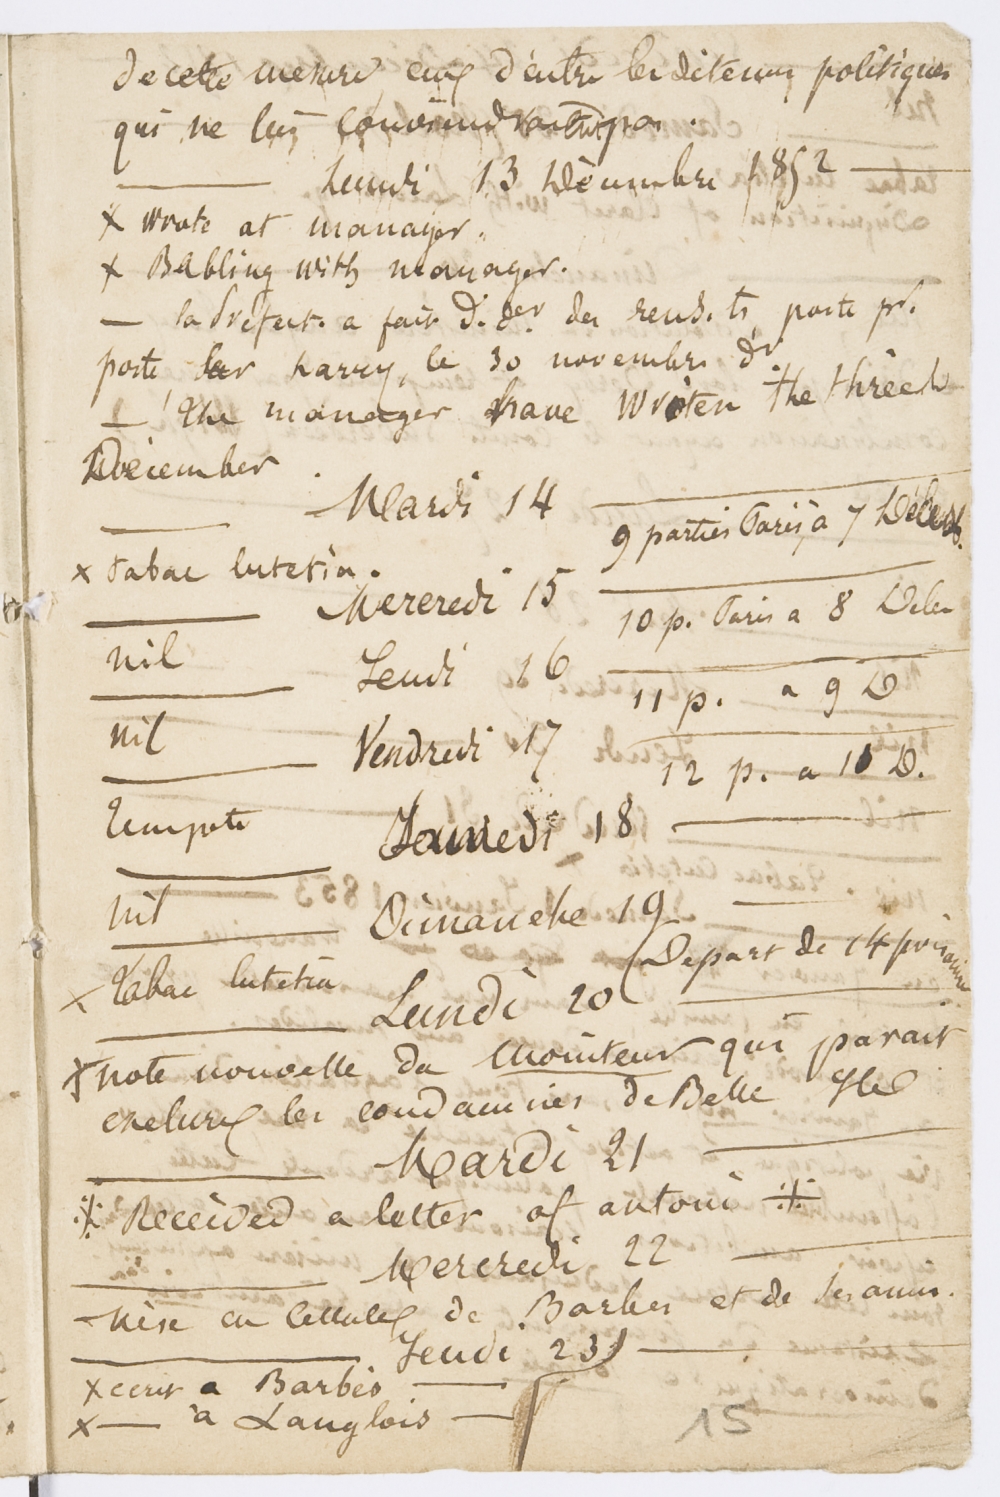 de cette mesure, ceux d'entre les détenus politiques
qui ne lui conviendraient pas.
Lundi 13 Décembre 1852
x Wrote at manager.
x Babling with manager.
— la Préfect. a fait d. der des rends. ts poste pr.
poste sur harry, le 30 novembre dr
— the manager have writen the threeth
Décember.
Mardi 14
9 parties Paris, a 7 Décemb.
x tabac lutetia.
Mercredi 15
10 p. Paris a 8 Décbr
nil
Jeudi 16
11 p. a 9 D
nil
Vendredi 17
12 p. a 10 D.
tempête
Samedi 18
nil
Dimanche 19
x tabac lutetia
Départ de 14 prisonniers
Lundi 20
x note nouvelle du Moniteur qui parait
exclure les condamnés de Belle Ile
Mardi 21
※ Recèived a letter of antoni ※
Mercredi 22
- Mise en cellules de Barbès et de ses amis.
Jeudi 23
x ecrit a Barbès —
x — à Langlois —
15